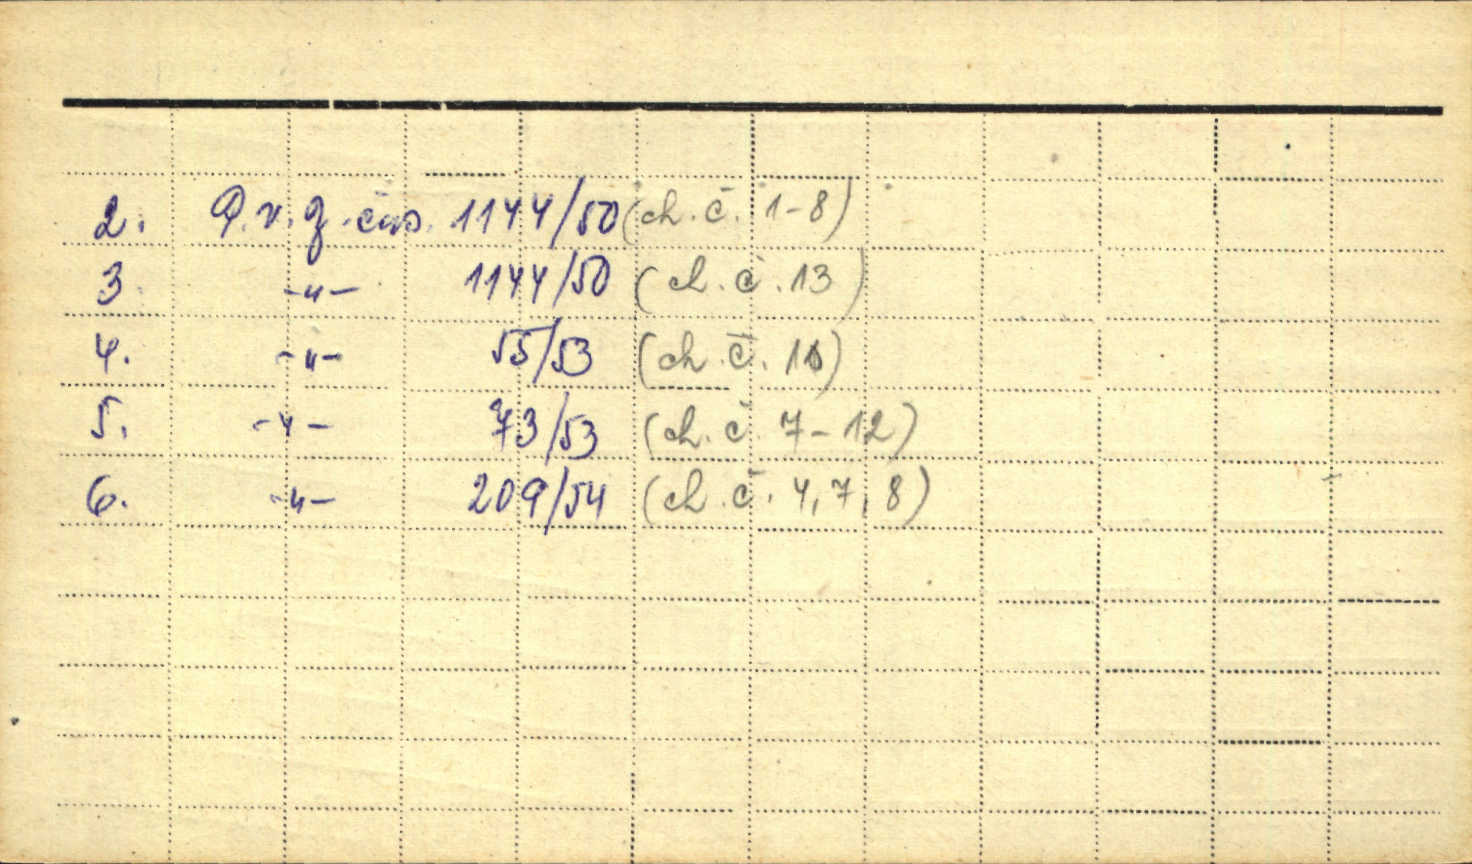 2. P.v.z. čes. 1144/50 (ch.č. 1-8)
3. -"- 1144/50 (ch.č. 13)
4. -"- 55/53 (ch.č.
5. -"- 73/53 (ch.č. 7-12)
6. -"- 209/54 (ch.č. 4,7,8)